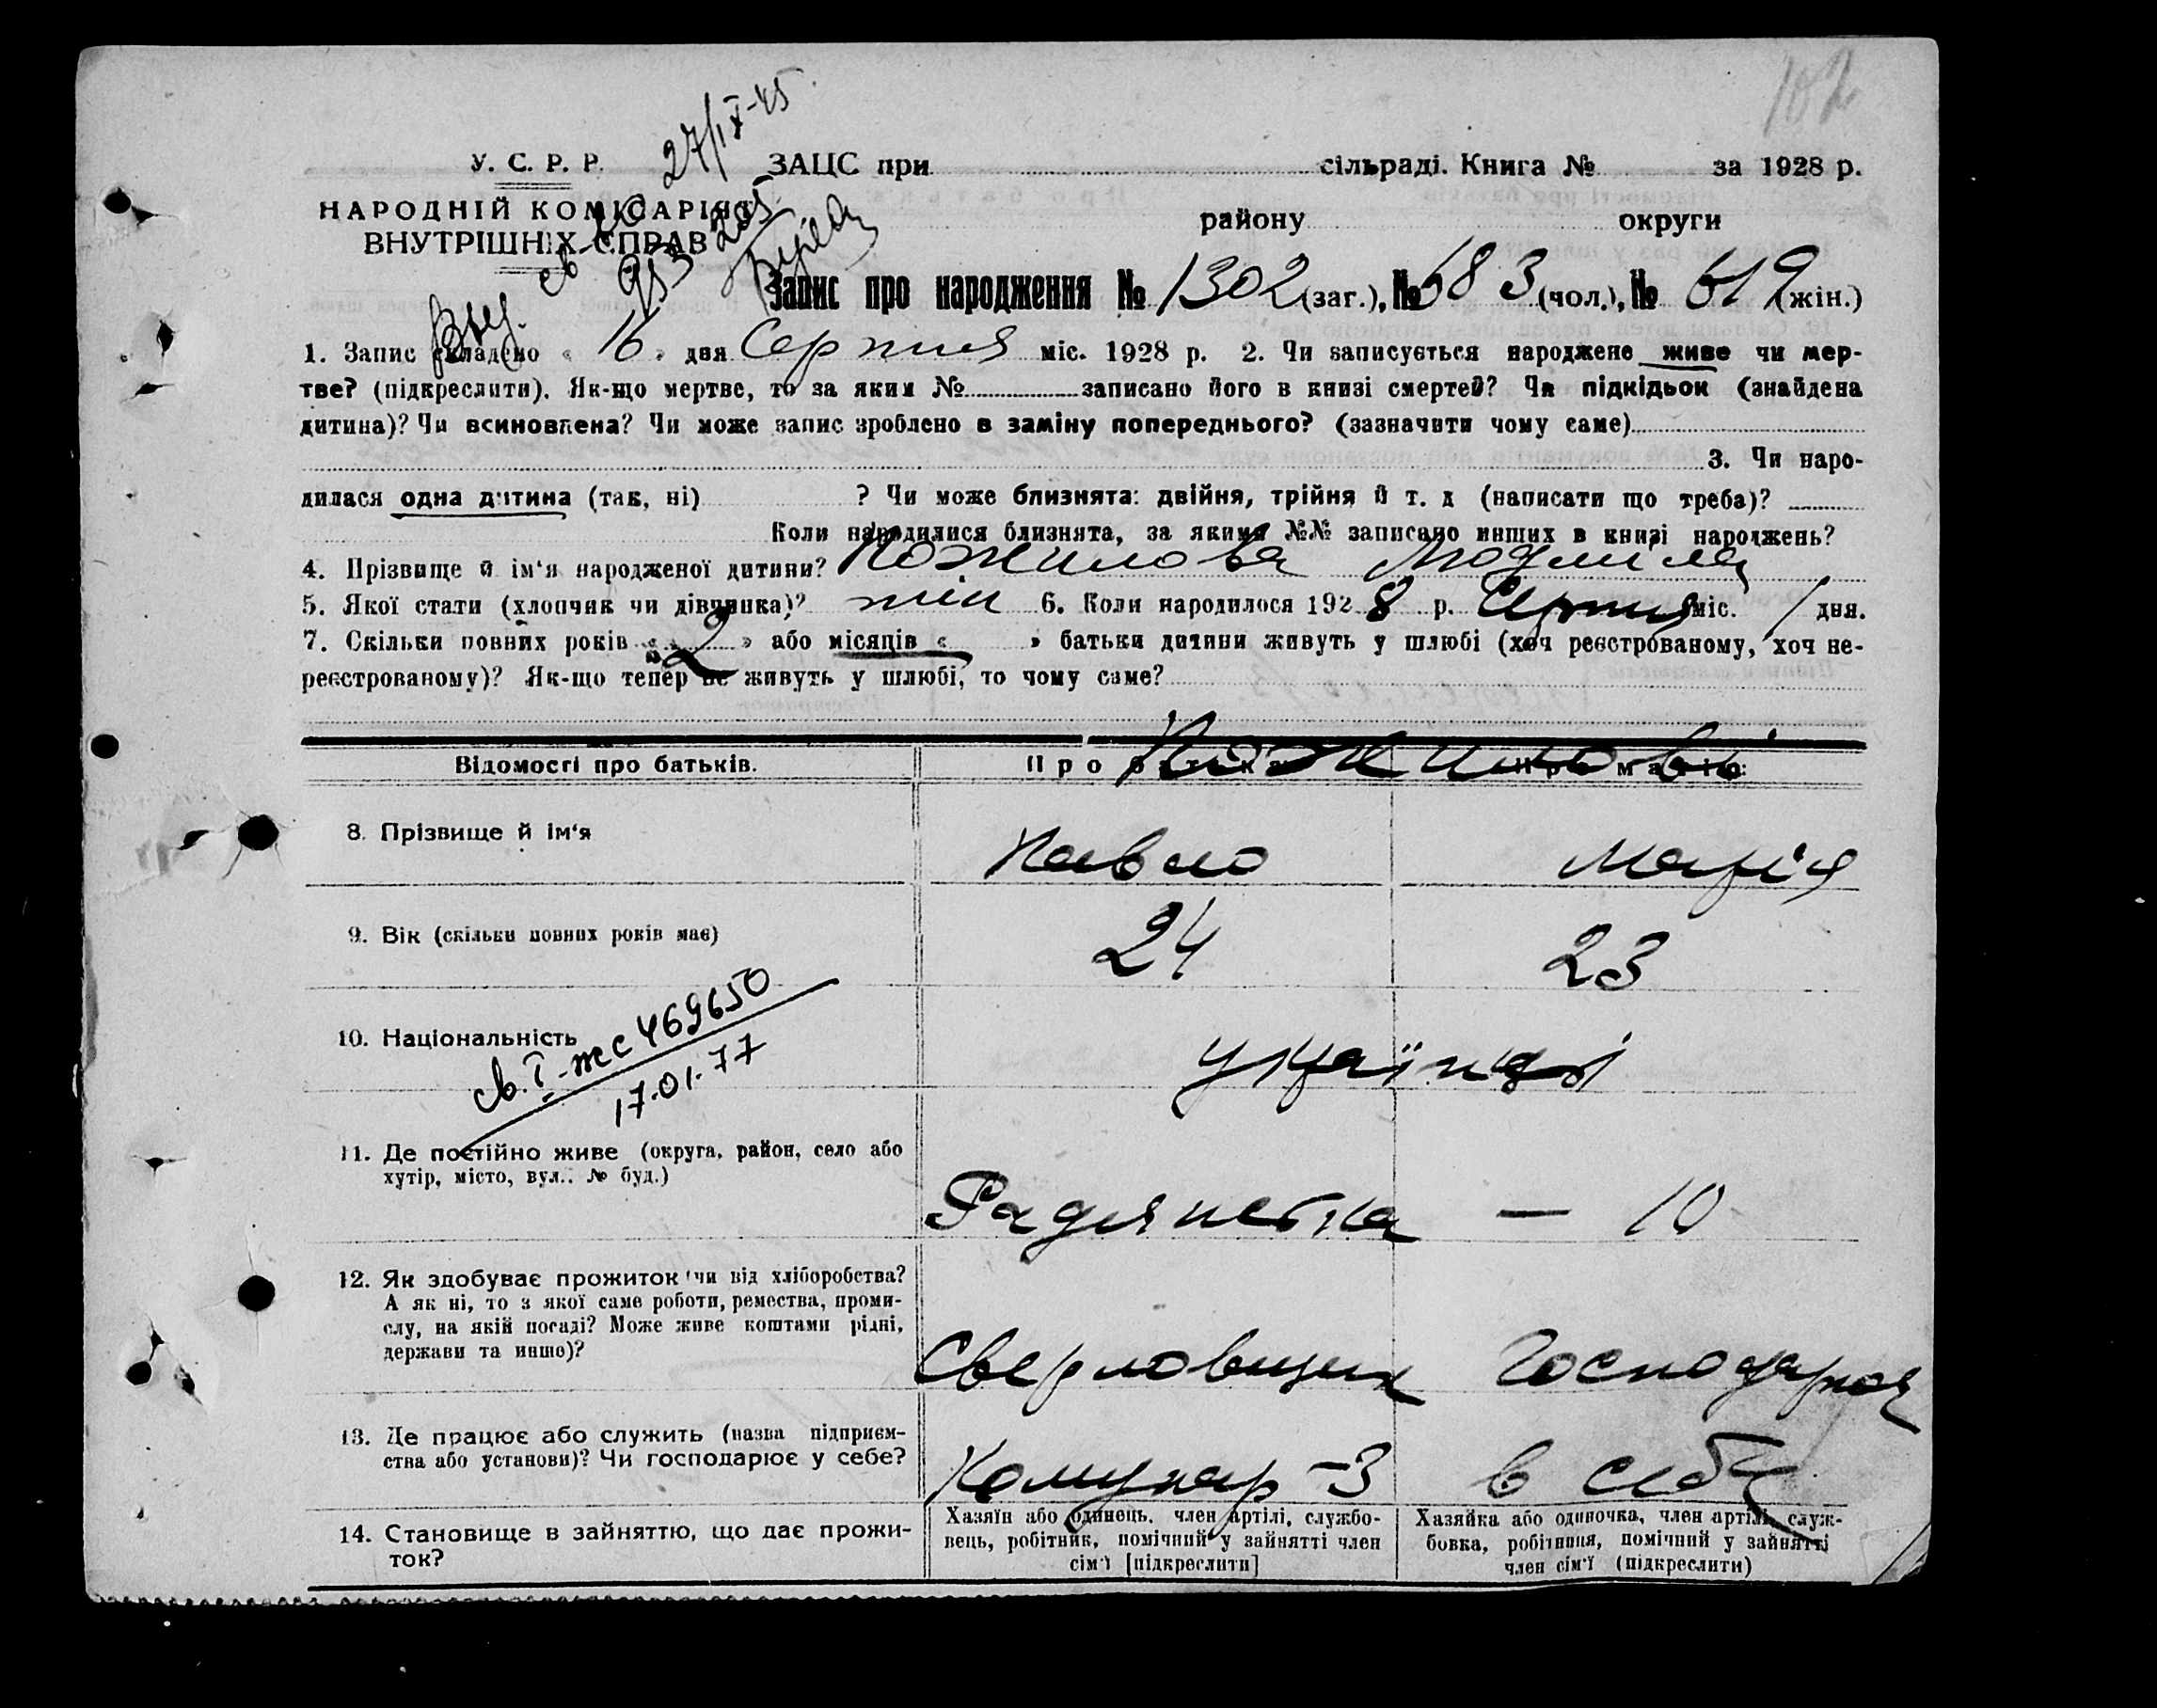 102
27/IX-45
У. С. Р. Р.
ЗАЦС при сільраді. Книга № за 1928 р.
НАРОДНІЙ КОМІСАРІЯТ
ВНУТРІШНІХ СПРАВ
району округи
Запис про народження № 1302 (заг.), № 683 (чол.), № 619 (жін.)
1. Запис складено « 16 » дня Серпня міс. 1928 р. 2. Чи записується народжене живе чи мер-
тве? (підкреслити). Як-що мертве, то за яким № записано його в книзі смертей? Чи підкідьок (знайдена
дитина)? Чи всиновлена? Чи може запис зроблено в заміну попереднього? (зазначити чому саме)
3. Чи наро-
дилася одна дитина (так, ні) ? Чи може близнята: двійня, трійня й т. д (написати що треба)?
Коли народилися близнята, за якими №№ записано инших в книзі народжень?
4. Прізвище й ім'я народженої дитини? Пожилова Людмила
5. Якої стати (хлопчик чи дівчинка)? жін 6. Коли народилося 1928 р. Серпня міс. 1 дня.
7. Скільки повних років « 2 » або місяців « » батьки дитини живуть у шлюбі (хоч реєстрованому, хоч не-
реєстрованому)? Як-що тепер не живуть у шлюбі, то чому саме?
Відомості про батьків. Про батька Про матір:
Пожилови
8. Прізвище й ім'я Павло Марія
9. Вік (скільки повних років має) 24 23
10. Національність українці
св. I-жс 469650
17.01.77
11. Де постійно живе (округа, район, село або
хутір, місто, вул., № буд.)
Радянська — 10
12. Як здобуває прожиток чи від хліборобства?
А як ні, то з якої саме роботи, ремества, проми-
слу, на якій посаді? Може живе коштами рідні,
держави та инше)?
Сверловщик Господарка
13. Де працює або служить (назва підприєм-
ства або установи)? Чи господарює у себе?
Комунар -З в себе
14. Становище в зайняттю, що дає прожи-
ток?
Хазяїн або одинець, член артілі, службо-
вець, робітник, помічний у зайнятті член
сім'ї [підкреслити]
Хазяйка або одиночка, член артілі, служ-
бовка, робітниця, помічний у зайнятті
член сім'ї (підкреслити)